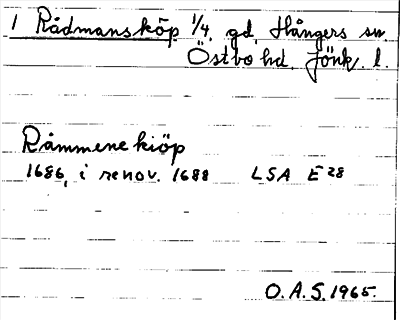 1 Rådmansköp 1/4 gd, Hångers sn.
Östbo hd. Jönk. l.
Råmmenekiöp
1686, i renov. 1688 LSA E 28
O.A.S. 1965.